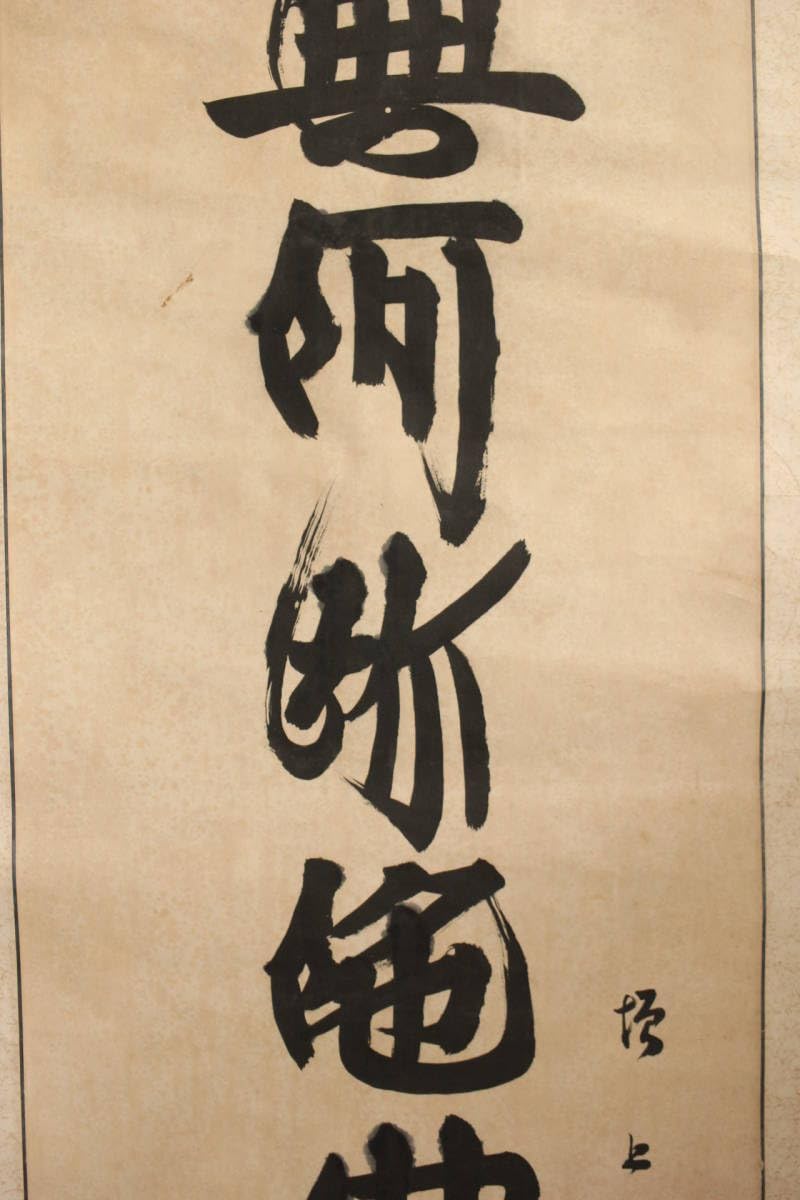 無阿弥陀
増上